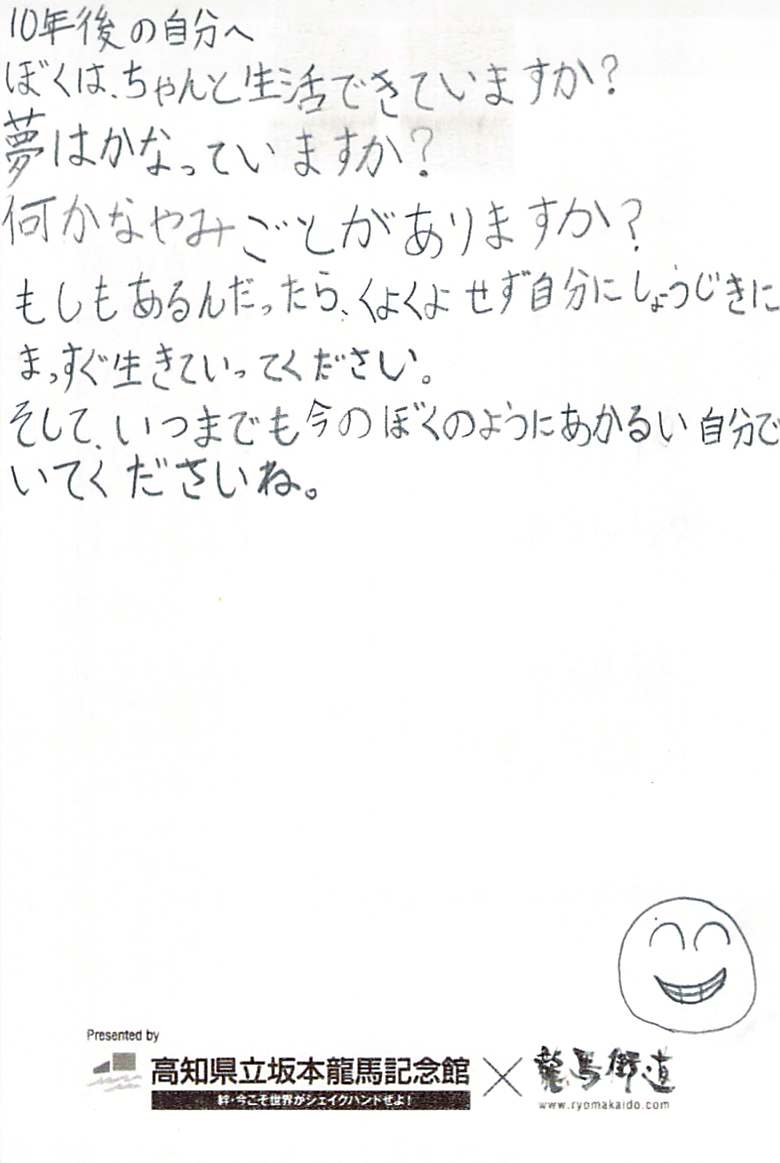 10年後の自分へ
ぼくは、ちゃんと生活できていますか?
夢はかなっていますか?
何かなやみごとがありますか?
もしもあるんだったら、くよくよせず自分にしょうじきに
まっすぐ生きていってください。
そして、いつまでも今のぼくのようにあかるい自分で
いてくださいね。
Presented by
高知県立坂本龍馬記念館×龍馬街道
絆・今こそ世界がシェイクハンドぜよ!
www.ryomakaido.com